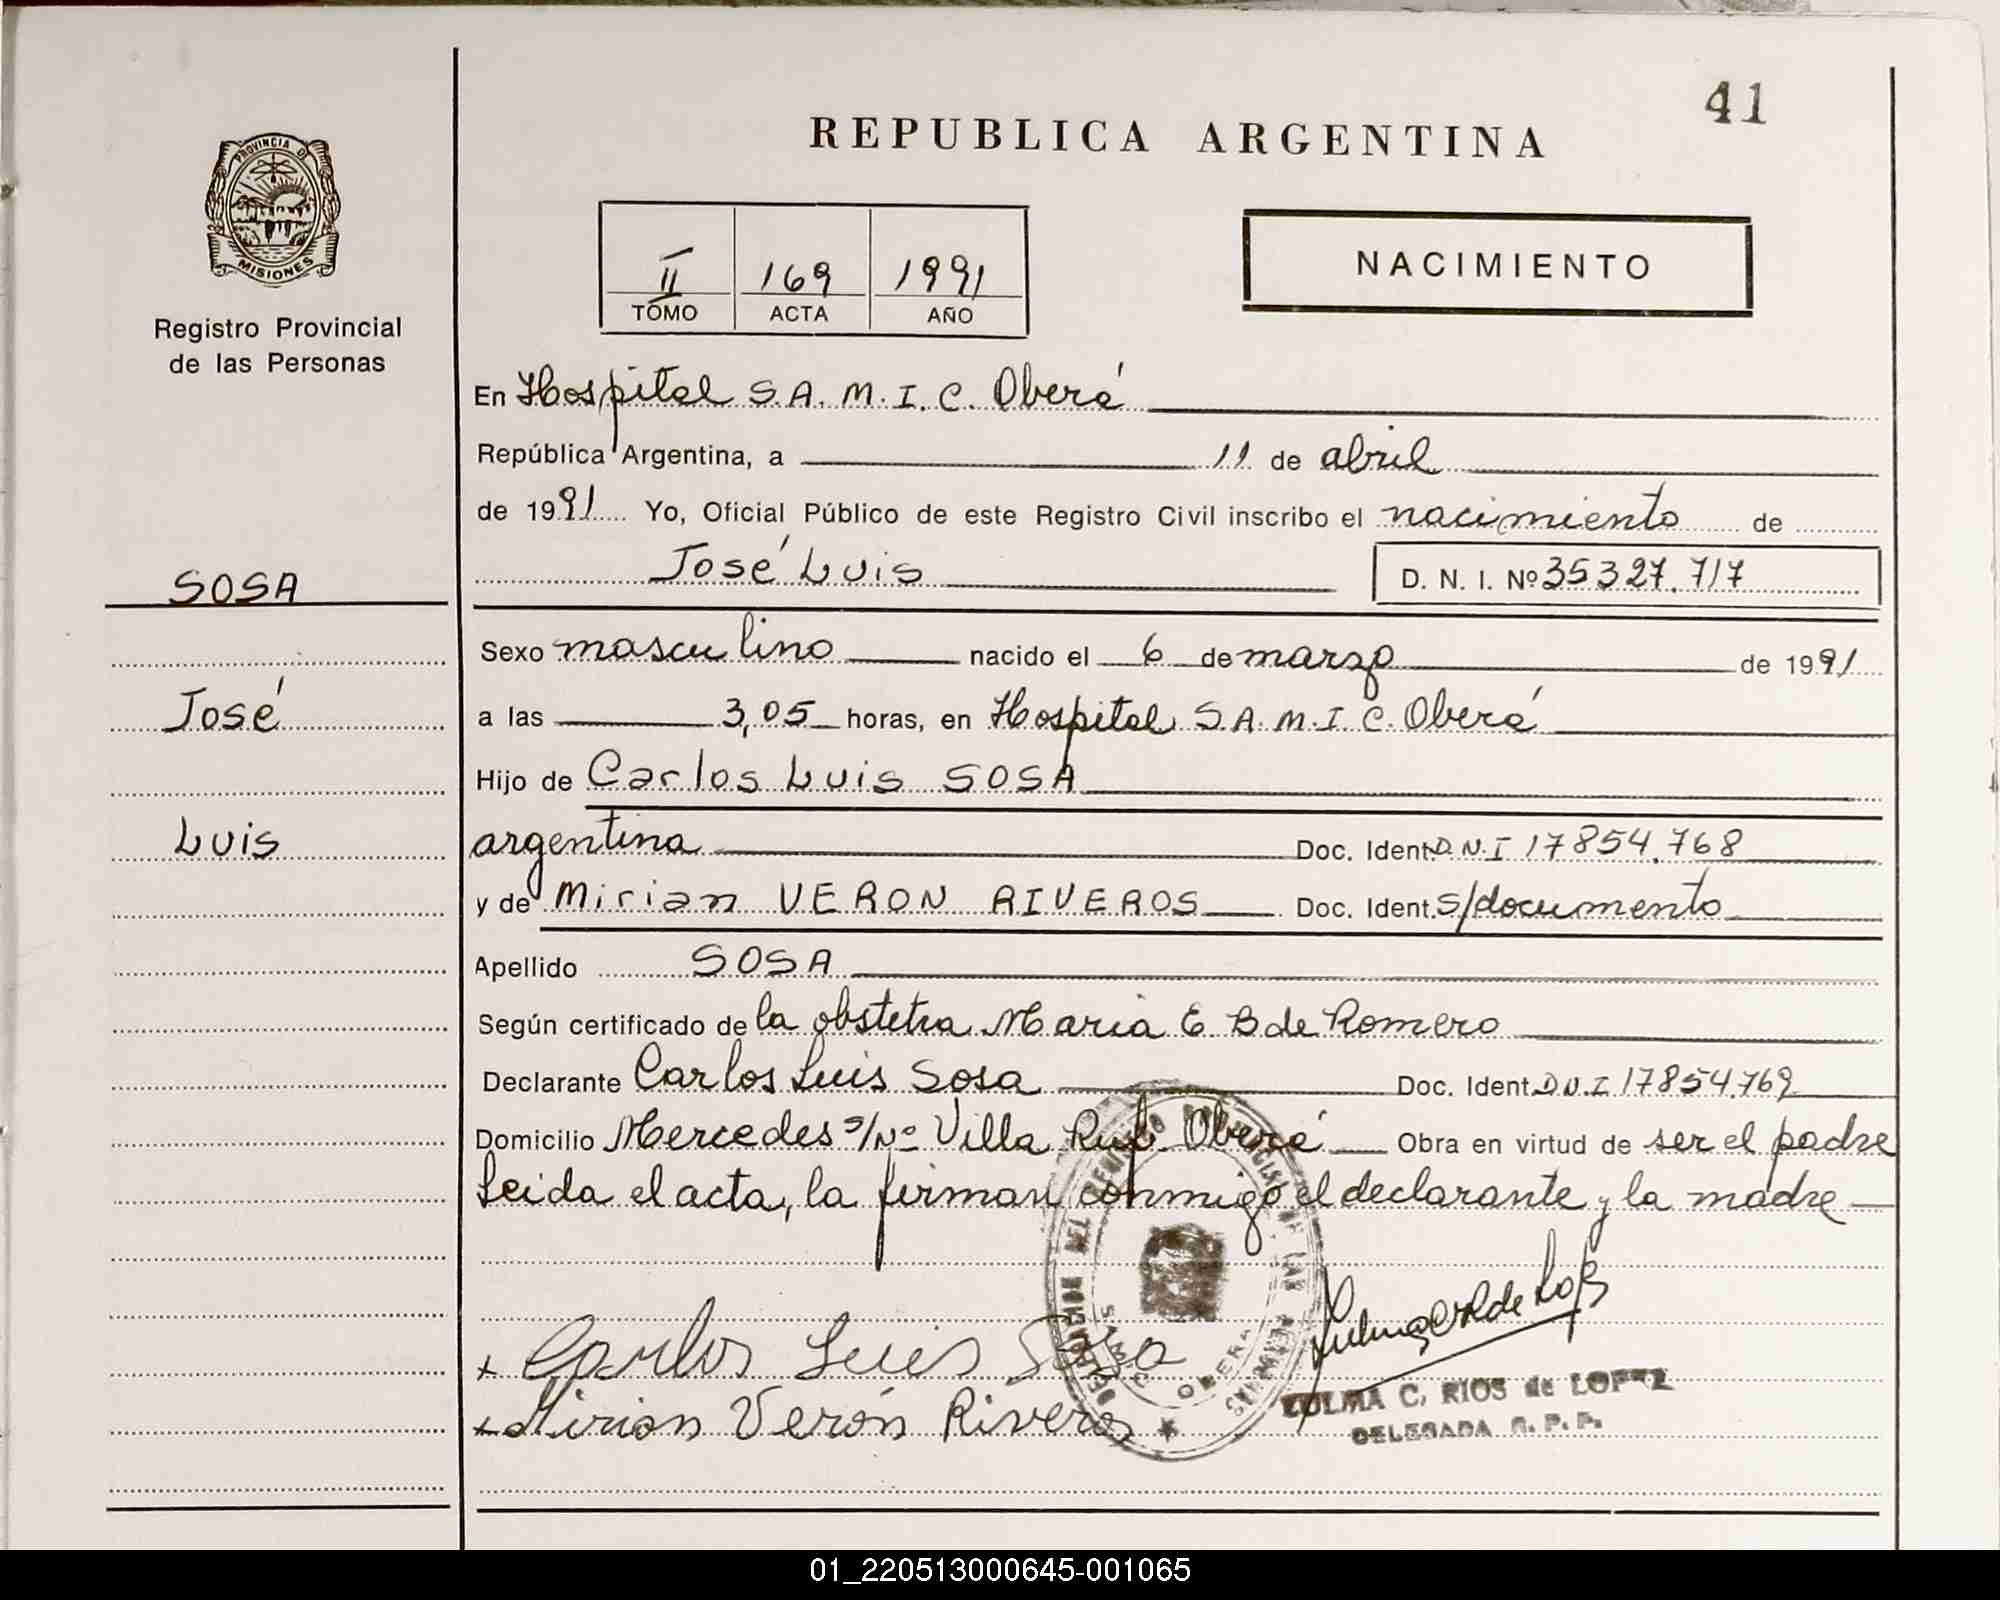 41
REPUBLICA ARGENTINA
PROVINCIA DE
MISIONES
Registro Provincial
de las Personas
II 169 1991
TOMO ACTA AÑO
NACIMIENTO
En Hospital S.A.M.I.C. Oberá
República Argentina, a 11 de abril
de 1991 Yo, Oficial Público de este Registro Civil inscribo el nacimiento de
José Luis D. N. I. Nº 35327.717
SOSA
Sexo masculino nacido el 6 de marzo de 1991
José
a las 3,05 horas, en Hospital S.A.M.I.C. Oberá
Hijo de Carlos Luis SOSA
Luis
argentina Doc. Ident. D.N.I 17854.768
y de Mirian VERON RIVEROS Doc. Ident. s/documento
Apellido SOSA
Según certificado de la obstetra Maria E B de Romero
Declarante Carlos Luis Sosa Doc. Ident. D.N.I 17854.769
Domicilio Mercedes s/Nº Villa Oberá Obra en virtud de ser el padre
Leida el acta, la firman conmigo el declarante y la madre
x Carlos Luis Sosa
x Mirian Verón Riveros
OBERA
ZULMA C. RIOS de LOPEZ
DELEGADA R. P. P.
01_220513000645-001065